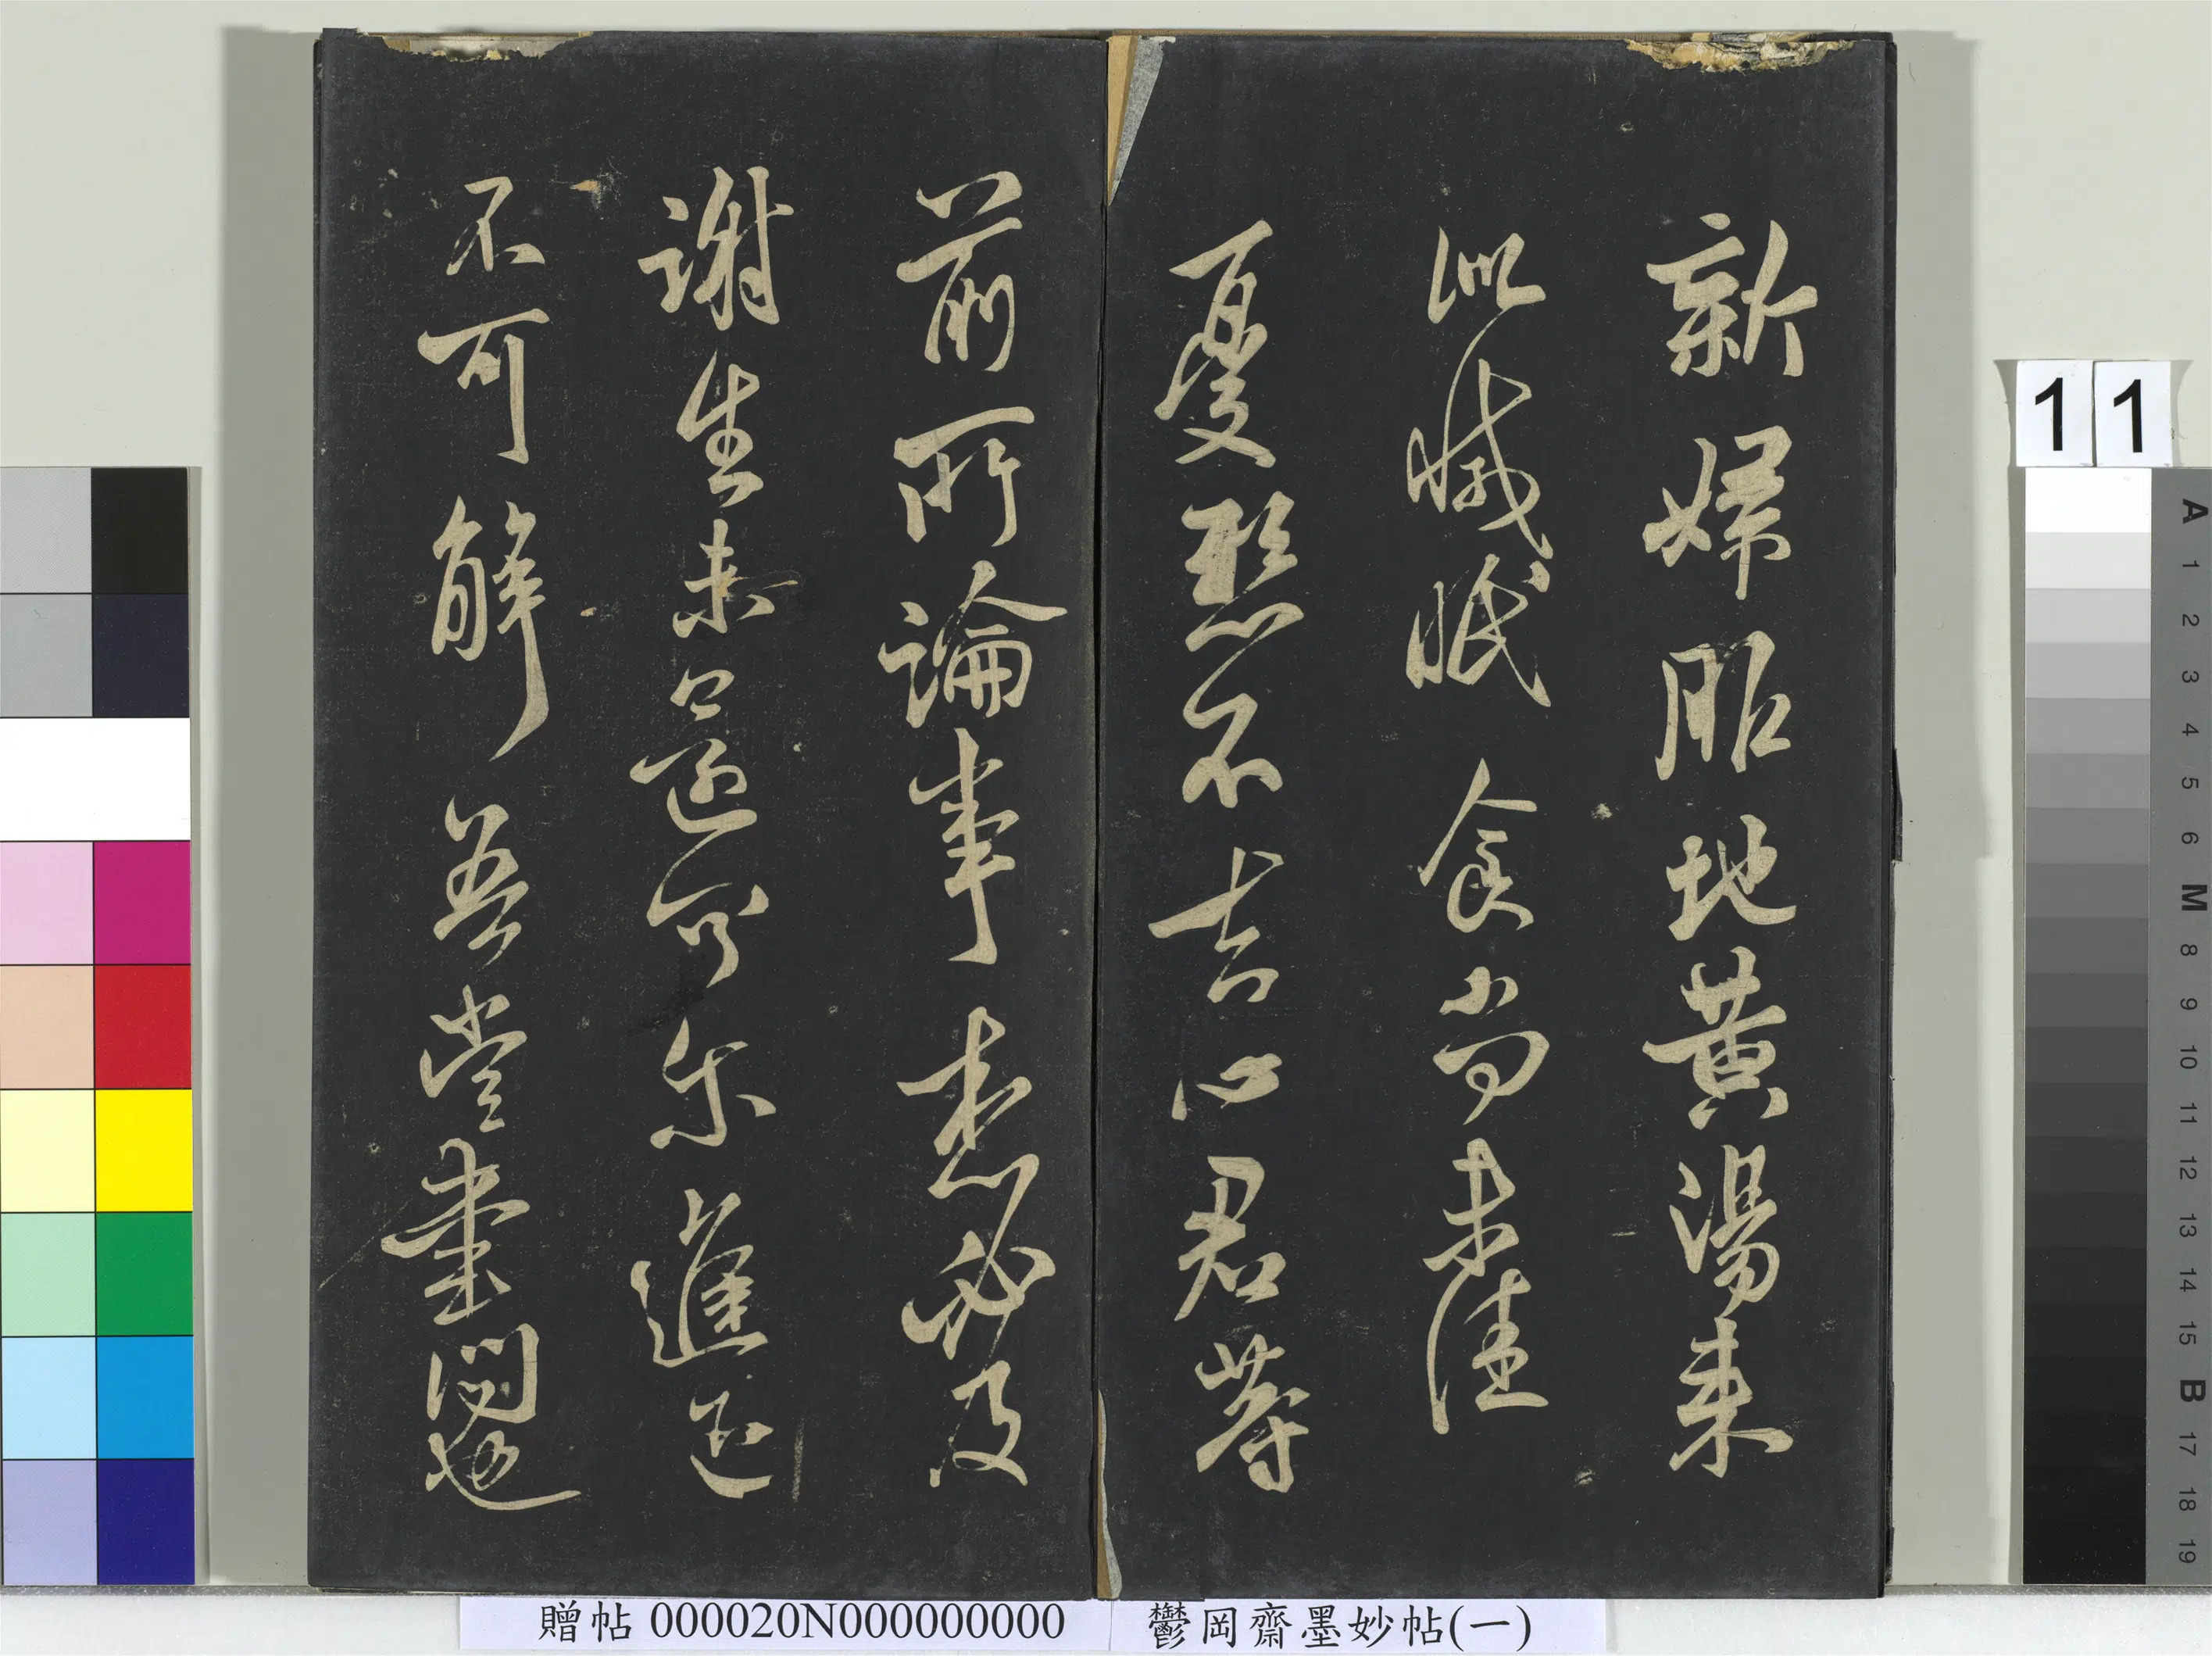 新婦服地黃湯來
似減眠食尚未佳
憂懸不去心君等
前所論事想必及
謝生未還可爾進退
不可解吾當書問也
贈帖 000020N000000000
鬱岡齋墨妙帖(一)
11
A 1 2 3 4 5 6 M 8 9 10 11 12 13 14 15 B 17 18 19